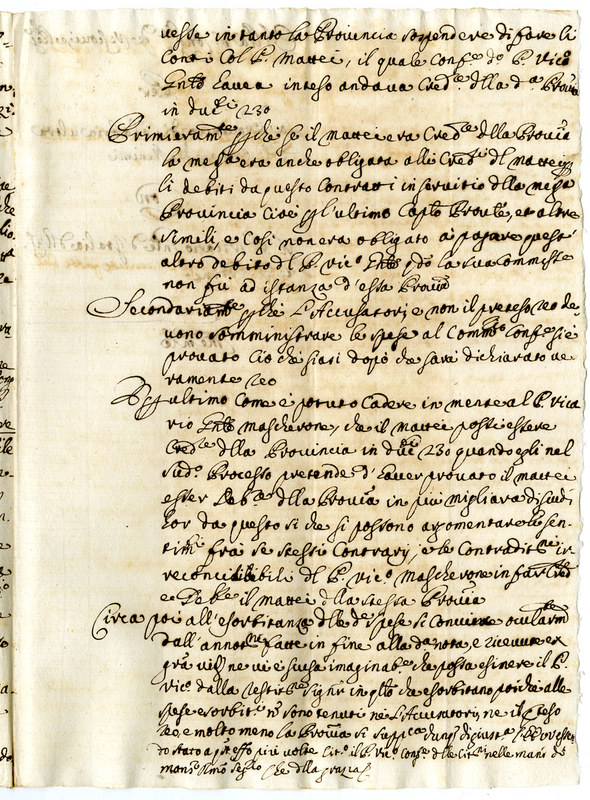 vesse in tanto la Provincia sospendere di fare li
Conti Col P. Mattei, il quale Conf.e d.o P. Vic.o
Gnãle havea inteso andava Cred.re della d.a Prov.a
in du.ti 230
Primieram.te p̱che se il mattei era Cred.re della Prov.a
la mesa era anche obligata alli Cred.ri del mattei p̱
li debiti da questo Contratti in servitio della mesa
Provincia Cioè p̱ l'ultimo Cap.lo Prov.le, et altre
simili, e Cosi non era obligato à pagare questi
altro debito del P. Vic.o Gnãle q̃do la sua Commis.e
non fù ad istanza d'essa Prov.a
Secondariam.te p̱che L'Accusatori e non il preteso reo de-
vono somministrare le spese al Comm.o Conf.e si è
provato Cio che siasi dopò che sarà dichiarato ve
ramente reo
P̱ ultimo Come è potuto Cadere in mente al P. Vica
rio Gnãle mascherone, che il mattei possi essere
Cred.re della Provincia in du.ti 230 quando egli nel
sud.o Processo pretende d'haver provato il mattei
esser Deb.re della Prov.a in più migliara di scudi
hor da questo si che si possono argomentare li sen-
tim.ti frà se stessi Contrarÿ, e le Contradit.ni ir-
reconciliabili del P. Vic.o Mascherone in far Cred.re
e Deb.re il mattei della stessa Prov.a
Circa poi all'esorbitanza delle d.e spese si Convince ocularm.te
dall'annot.ni fatte in fine alla d.a nota, e ricevute
ne vi è scusa imaginab.e che possa esimere il P.
Vic.o dalla restit.ne in q̃llo che esorbitano poiche alle
spese esorbit.i nõ sono tenuti ne l'Accusatori, ne il preteso
reo, e molto meno la Prov.a si supp.ca
do stato a più volte il P. Vic.o Conf.e nelle mani di
mons.r della grazia